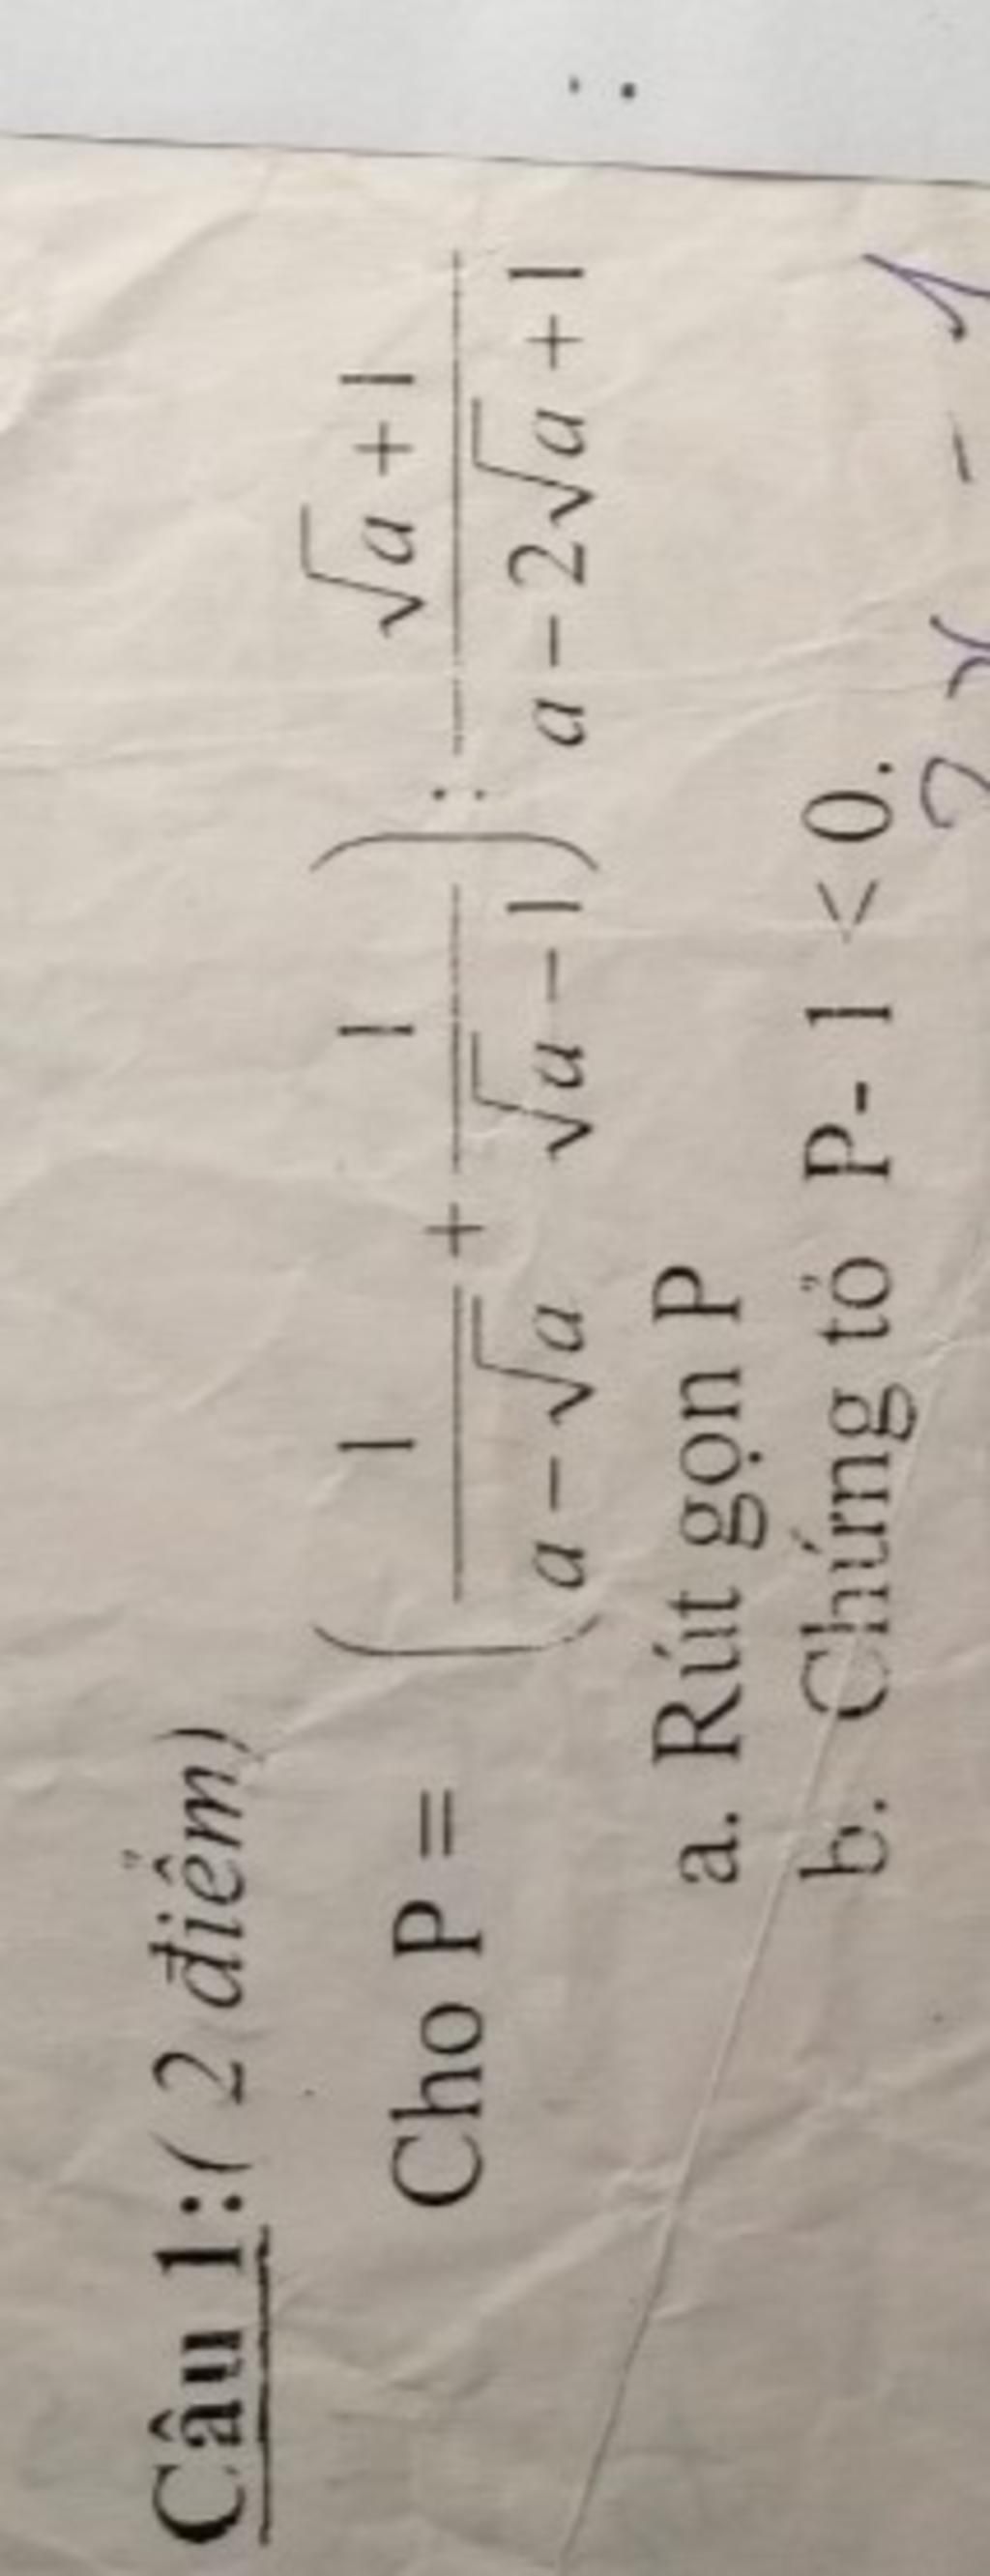 Câu 1:( 2 điểm)
Cho P = (1/(a - √a) + 1/(√a - 1)) : (√a + 1)/(a - 2√a + 1)
a. Rút gọn P
b. Chứng tỏ P- 1 < 0.